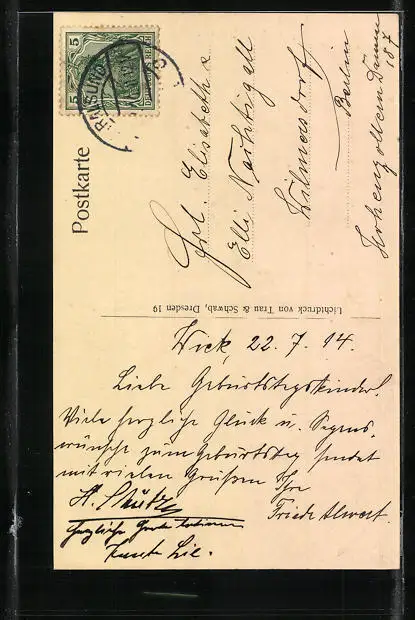 Postkarte
5
5
DEUTSCHES REICH
Frl. Elisabeth &
Elli Nachtigall
Wilmersdorf
Berlin
Hohenzollerndamm
187
Lichtdruck von Trau & Schwab, Dresden 19
Wiek, 22. 7. 14.
Liebe Geburtstagskinder!
Viele herzliche Glück u. Segens-
wünsche zum Geburtstag sendet
mit vielen Grüßen Ihr
Friede Alwert.
herzliche Gratulationen
Tante Lie.